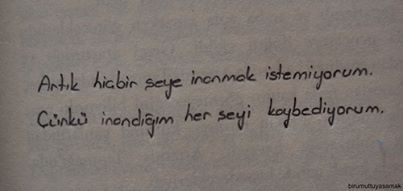 Artık hiçbir şeye inanmak istemiyorum.
Çünkü inandığım her şeyi kaybediyorum.
birumuttuyasamak